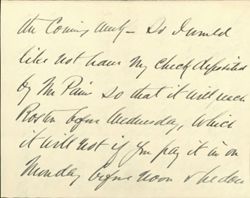 the Coming week — So I would
like not have my check deposited
by Mr Pain so that it will reach
Boston before Wednesday, which
it will not if you pay it in on
Monday before noon & he does